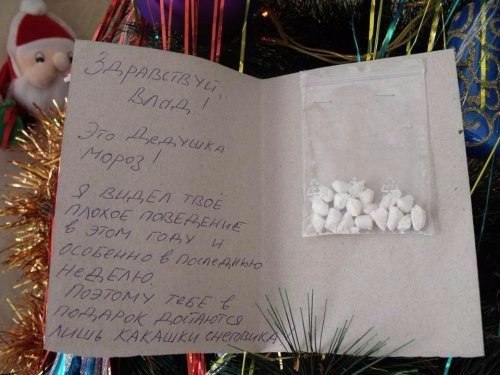 Здравствуй,
Влад!
Это Дедушка
Мороз!
Я видел твоё
плохое поведение
в этом году и
особенно в последнюю
неделю.
Поэтому тебе в
подарок достаются
лишь какашки снеговика